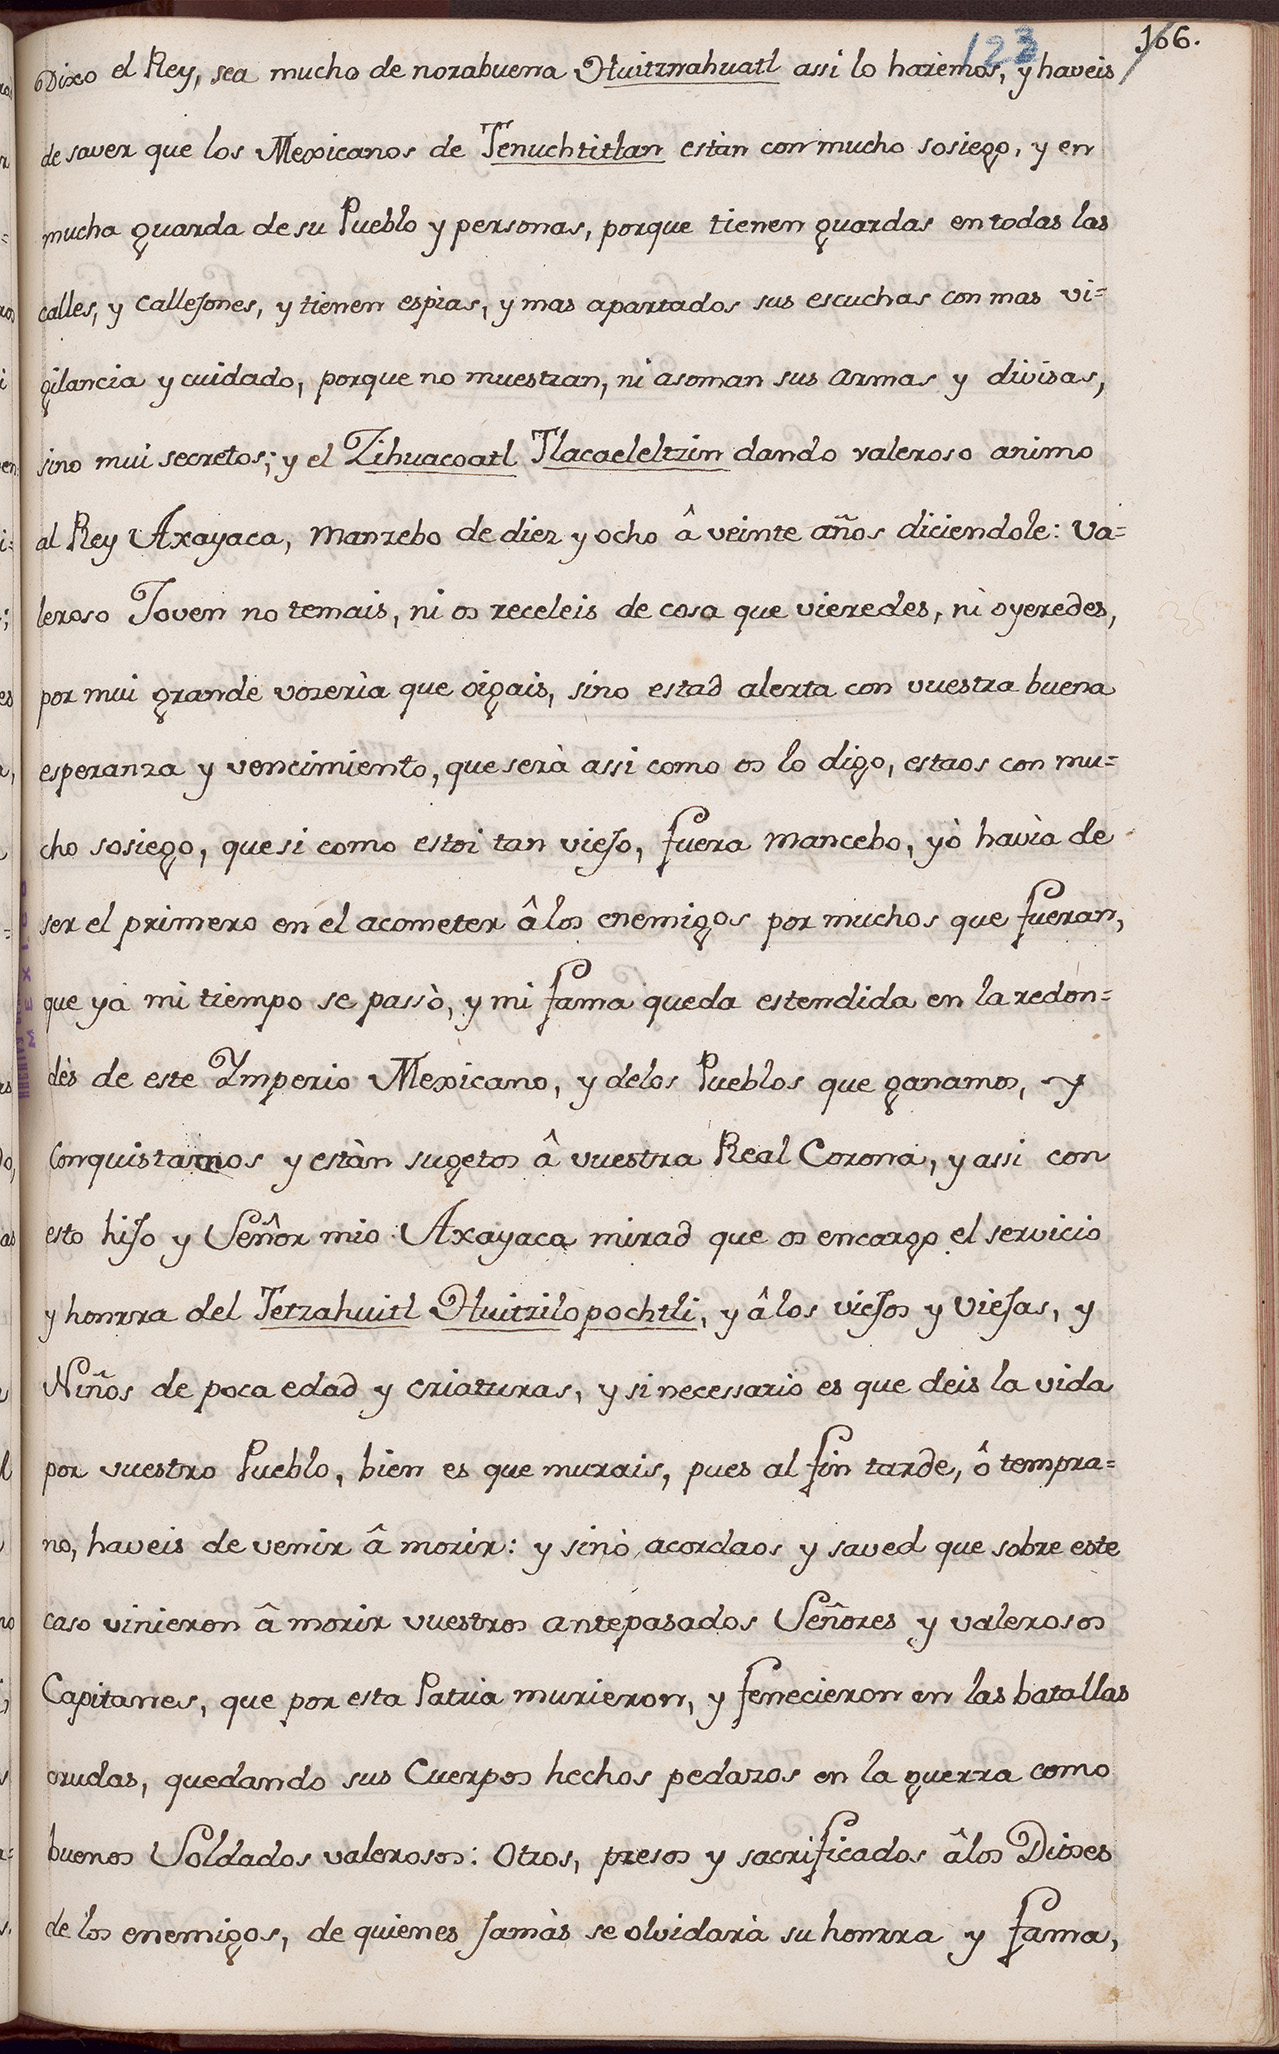 123
166.
Dixo el Rey, sea mucho de norabuena Huitznahuatl assi lo harèmos, y haveis
de saver que los Mexicanos de Tenuchtitlan estàn con mucho sosiego, y en
mucha guarda de su Pueblo y personas, porque tienen guardas en todas las
calles, y callejones, y tienen espias, y mas apartados sus escuchas con mas vi=
gilancia y cuidado, porque no muestran, ni asoman sus armas y divisas,
sino mui secretos; y el Zihuacoatl Tlacaeleltzin dando valeroso animo
al Rey Axayaca, manzebo de diez y ocho â veinte años diciendole: Va=
leroso Joven no temais, ni os receleis de cosa que vieredes, nì oyeredes,
por mui grande vozerìa que oigais, sino estad alerta con vuestra buena
esperanza y vencimiento, que serà assi como os lo digo, estaos con mu=
cho sosiego, que si como estoi tan viejo, fuera mancebo, yò havìa de
ser el primero en el acometer â los enemigos por muchos que fueran,
que yà mi tiempo se passò, y mi fama queda estendida en la redon=
dès de este Ymperio Mexicano, y de los Pueblos que ganamos, y
conquistamos y estàn sugetos â vuestra Real Corona, y assi con
esto hijo y Señor mio Axayaca mirad que os encargo el servicio
y honrra del Tetzahuitl Huitzilopochtli, y â los viejos y viejas, y
Niños de poca edad y criaturas, y si necessario es que deis la vida
por vuestro Pueblo, bien es que murais, pues al fin tarde, ô tempra=
no, haveis de venir â morir: y sinò acordaos y saved que sobre este
caso vinieron â morir vuestros antepasados Señores y valerosos
Capitanes, que por esta Patria murieron, y fenecieron en las batallas
crudas, quedando sus Cuerpos hechos pedazos en la guerra como
buenos Soldados valerosos: otros, presos y sacrificados â los Dioses
de los enemigos, de quienes jamàs se olvidarà su honrra y fama,